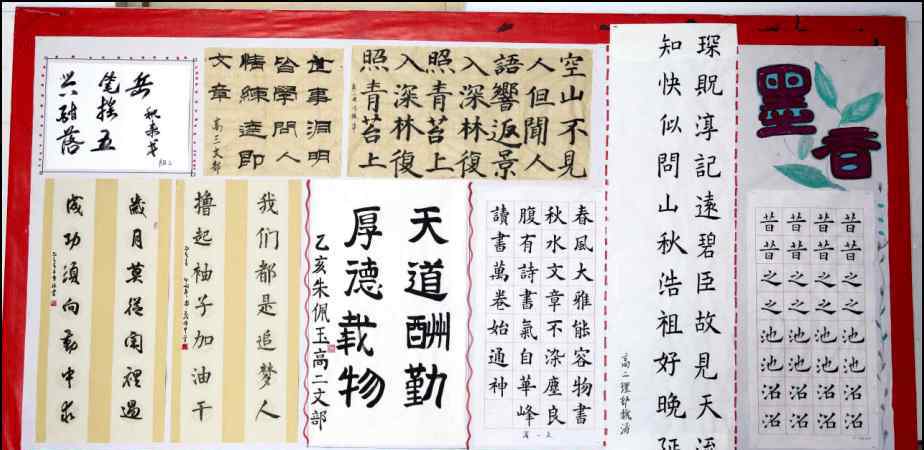 岳
笔摇五
兴酣落
世事洞明
皆學問人
情練達即
文章
高三文部
空山不見
人但聞人
語響返景
入深林復
照青苔上
入深林復
照青苔上
琛貺淳記遠碧臣故見天
知快似問山秋浩祖好晚延
高二理部魏涵
墨香
我们都是追梦人
撸起袖子加油干
歲月莫從閑裡過
成功须向勤中求
天道酬勤
厚德载物
乙亥朱佩玉高二文部
春風大雅能容物書
秋水文章不染塵良
腹有詩書氣自華峰
讀書萬卷始通神
高一文
昔昔昔昔
昔昔昔昔
之之之之
之之之之
池池池池
池池池池
沼沼沼沼
沼沼沼沼